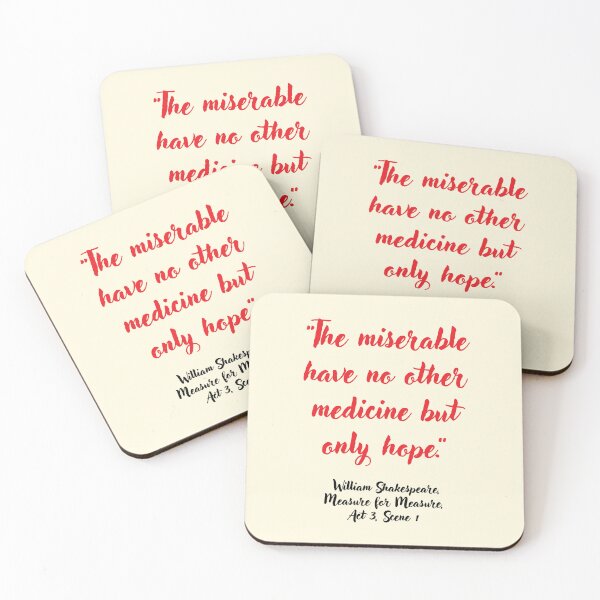 "The miserable
have no other
medicine but
e."
"The miserable
have no other
medicine but
only hope."
"The miserable
have no other
medicine but
only hope"
William Shakespe
Measure for M
Act 3, Sce
"The miserable
have no other
medicine but
only hope."
William Shakespeare,
Measure for Measure,
Act 3, Scene 1